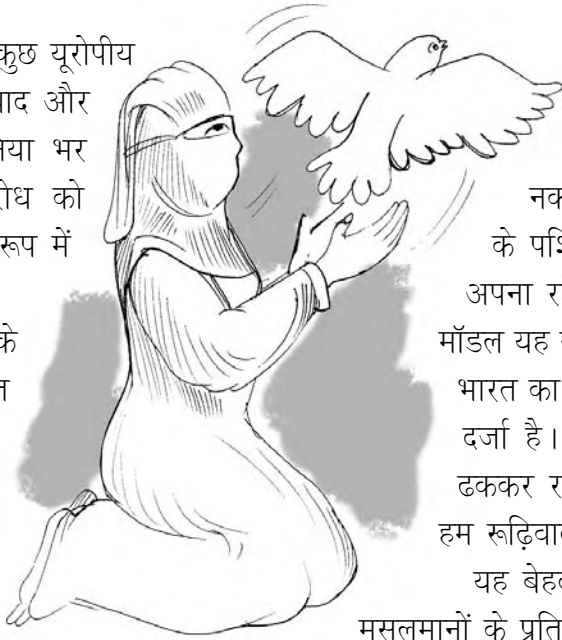 कुछ यूरोपीय
वाद और
भर
रोध को
रूप में
के
नक
के पश्चि
अपना र
मॉडल यह
भारत का
दर्जा है।
ढककर र
हम रूढ़िवा
यह बेह
मुसलमानों के प्रति